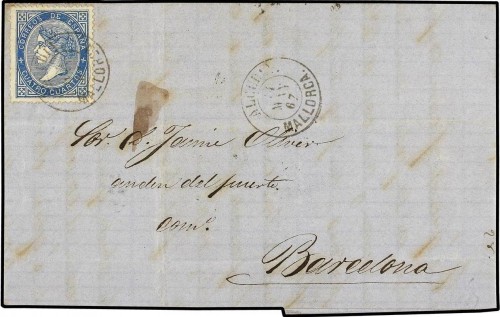 CORREOS DE ESPAÑA
CUATRO CUARTOS
MALLORCA.
67
MALLORCA.
Sor. D. Jaime Oliver
anden del puerto.
Barcelona